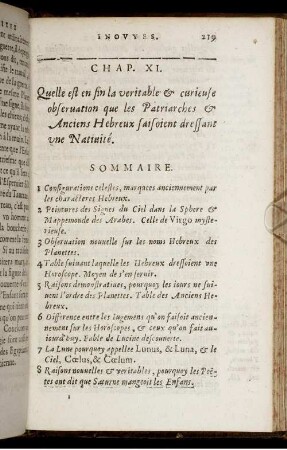 INOVYES. 219
CHAP. XI.
Quelle est en fin la veritable & curieuse
obseruation que les Patriarches &
Anciens Hebreux faisoient dressant
vne Natiuité.
SOMMAIRE.
1 Configurations celestes, marquees anciennement par
les characteres Hebreux.
2 Peintures des Signes du Ciel dans la Sphere &
Mappemonde des Arabes. Celle de Virgo myste-
rieuse.
3 Obseruation nouuelle sur les noms Hebreux des
Planettes.
4 Table suiuant laquelle les Hebreux dressoient vne
Horoscope. Moyen de s'en seruir.
5 Raisons demonstratiues, pourquoy les iours ne sui-
uent l'ordre des Planettes. Table des Anciens He-
breux.
6 Difference entre les Iugemens qu'on faisoit ancien-
nement sur les Horoscopes, & ceux qu'on fait au-
iourd'huy. Fable de Lucine descouuerte.
7 La Lune pourquoy appellee Lunus, & Luna, & le
Ciel, Cœlus, & Cœlum.
8 Raisons nouuelles & veritables, pourquoy les Poë-
tes ont dit que Saturne mangeoit les Enfans.